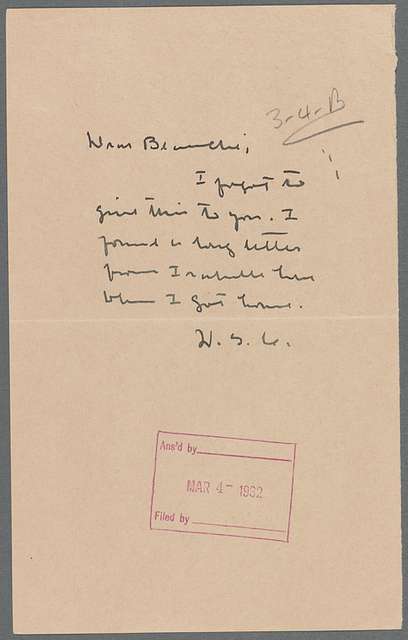 3-4-B
Dear Blanche,
I forgot to
give this to you. I
found a long letter
from Isabelle here
when I got home.
W. S. C.
Ans'd by
MAR 4- 1932
Filed by